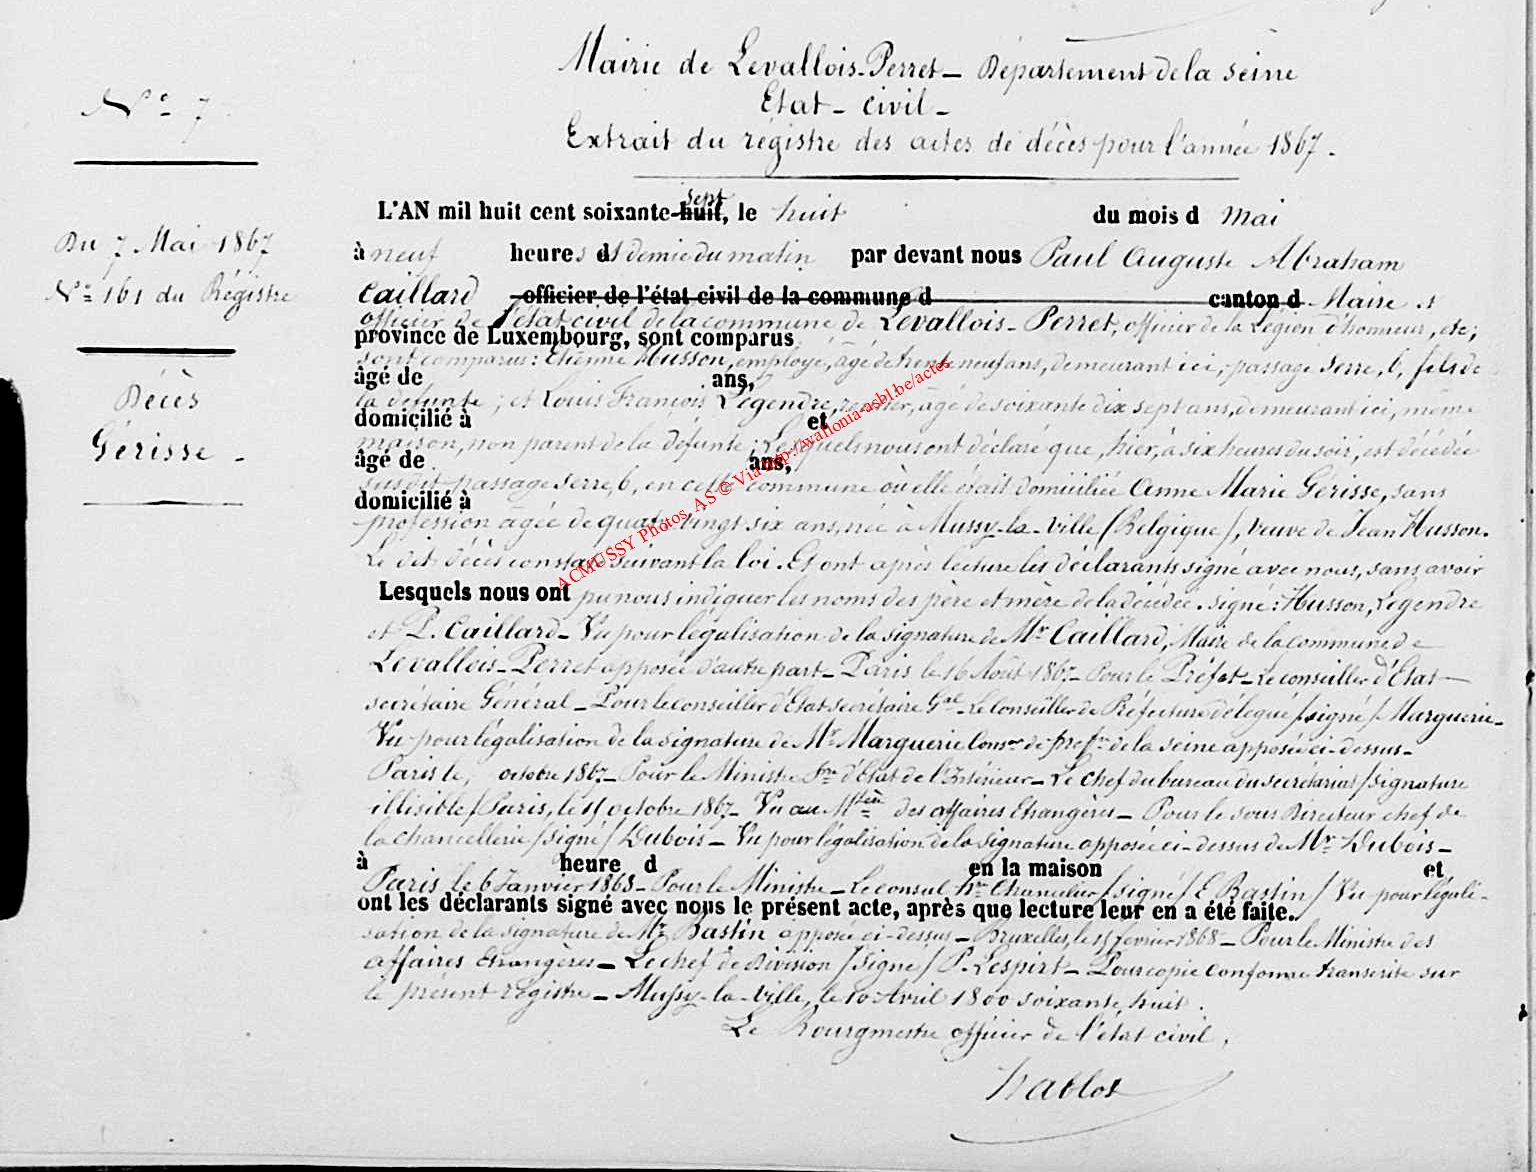 Mairie de Levallois-Perret — Département de la Seine
Etat - civil -
Extrait du registre des actes de décès pour l'année 1867 -
N° 7
L'AN mil huit cent soixante-huit, sept le huit du mois d Mai
Du 7 Mai 1867
à neuf heures et demie du matin par devant nous Paul Auguste Abraham
N° 161 du Régistre
Caillard officier de l'état civil de la commune d canton d Maire et
officier de l'état civil de la commune de Levallois-Perret, officier de la Légion d'honneur, etc;
province de Luxembourg, sont comparus
sont comparus: Etienne Husson, employé, âgé de trente neuf ans, demeurant ici, passage Serre, 6, fils de
âgé de ans,
Décès
la défunte; et Louis François Legendre, rentier, âgé de soixante dix sept ans, demeurant ici, même
domicilié à et
Gérisse -
maison, non parent de la défunte; Lesquels nous ont déclaré que, hier, à six heures du soir, est décédée
âgé de ans,
susdit passage Serre, 6, en cette commune où elle était domiciliée Anne Marie Gérisse, sans
domicilié à
profession âgée de quatre vingt six ans, née à Mussy-la-Ville (Belgique), veuve de Jean Husson.
Le dit décès constaté suivant la loi. Et ont après lecture les déclarants signé avec nous, sans avoir
Lesquels nous ont pu nous indiquer les noms des père et mère de la décédée. Signé: Husson, Legendre
et P. Caillard - Vu pour légalisation de la signature de Mr Caillard, Maire de la commune de
Levallois-Perret apposée d'autre part - Paris le 16 Août 1867 - Pour le Préfet - Le conseiller d'Etat
secrétaire Général - Pour le conseiller d'Etat secrétaire Gal - Le Conseiller de Préfecture délégué / signé / Marguerie -
Vu pour légalisation de la signature de Mr Marguerie Conser de prefre de la Seine apposée ci-dessus -
Paris le, octobre 1867 - Pour le Ministre Sre d'Etat de l'Intérieur - Le chef du bureau du secrétariat / signature
illisible / Paris, le 15 octobre 1867 - Vu au Mtère des affaires Etrangères - Pour le sous Directeur chef de
la chancellerie / signé / Dubois - Vu pour légalisation de la signature apposée ci-dessus de Mr Dubois -
à heure d en la maison et
Paris le 6 Janvier 1868 - Pour le Ministre - Le consul hre Chancelier / signé / E Bastin / Vu pour légali-
ont les déclarants signé avec nous le présent acte, après que lecture leur en a été faite.
sation de la signature de Mr Bastin apposée ci-dessus - Bruxelles, le 15 fevrier 1868 - Pour le Ministre des
affaires Etrangères - Le chef de Division / signé / P. Lespirt - Pour copie conforme transcrite sur
le présent registre - Mussy-la-Ville, le 10 Avril 1800 soixante huit.
Le Bourgmestre officier de l'état civil,
ACMUSSY Photos, AS © Via http://wallonia-asbl.be/actes